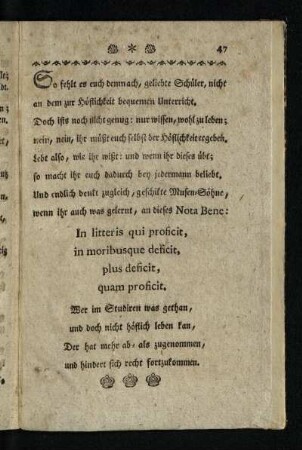 47
So fehlt es euch demnach, geliebte Schüler, nicht
an dem zur Höflichkeit bequemen Unterricht.
Doch ists noch nicht genug: nur wissen, wohl zu leben;
nein, nein, ihr müßt euch selbst der Höflichkeit ergeben.
Lebt also, wie ihr wißt: und wenn ihr dieses übt;
so macht ihr euch dadurch bey jedermann beliebt.
Und endlich denkt zugleich, geschikte Musen-Söhne,
wenn ihr auch was gelernt, an dieses Nota Bene:
In litteris qui proficit,
in moribusque deficit,
plus deficit,
quam proficit.
Wer im Studiren was gethan,
und doch nicht höflich leben kan,
Der hat mehr ab- als zugenommen,
und hindert sich recht fortzukommen.